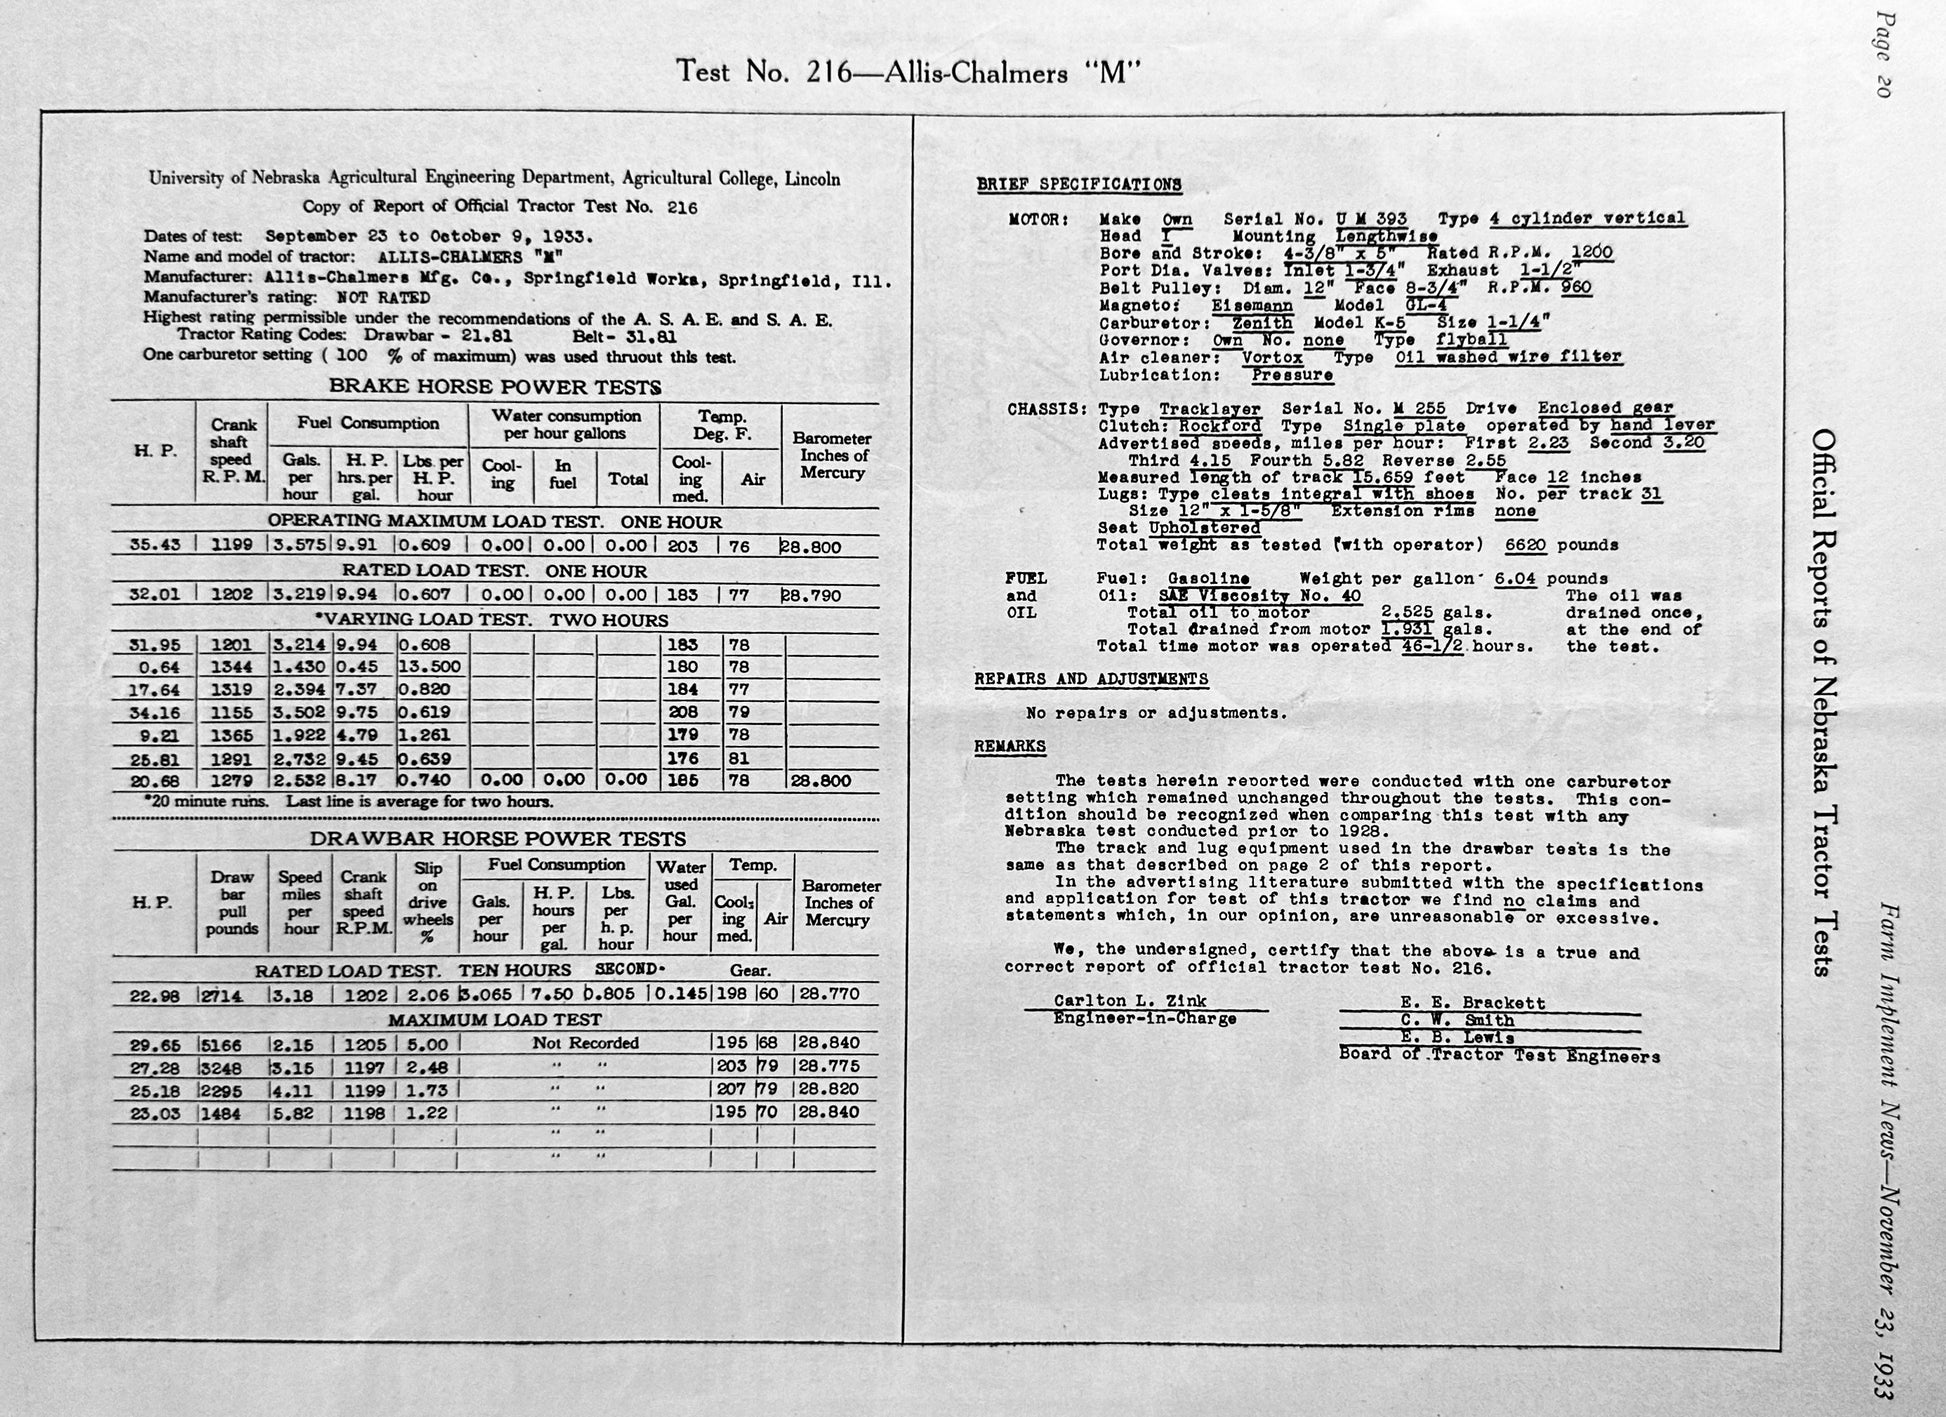 Page 20
Test No. 216—Allis-Chalmers "M"
University of Nebraska Agricultural Engineering Department, Agricultural College, Lincoln
Copy of Report of Official Tractor Test No. 216
Dates of test: September 23 to October 9, 1933.
Name and model of tractor: ALLIS-CHALMERS "M"
Manufacturer: Allis-Chalmers Mfg. Co., Springfield Works, Springfield, Ill.
Manufacturer's rating: NOT RATED
Highest rating permissible under the recommendations of the A. S. A. E. and S. A. E.
Tractor Rating Codes: Drawbar - 21.81 Belt- 31.81
One carburetor setting ( 100 % of maximum) was used thruout this test.
BRAKE HORSE POWER TESTS
H. P. | Crank shaft speed R. P. M. | Fuel Consumption | Water consumption per hour gallons | Temp. Deg. F. | Barometer Inches of Mercury
Gals. per hour | H. P. hrs. per gal. | Lbs. per H. P. hour | Cool-ing | In fuel | Total | Cool-ing med. | Air
OPERATING MAXIMUM LOAD TEST. ONE HOUR
35.43 | 1199 | 3.575 | 9.91 | 0.609 | 0.00 | 0.00 | 0.00 | 203 | 76 | 28.800
RATED LOAD TEST. ONE HOUR
32.01 | 1202 | 3.219 | 9.94 | 0.607 | 0.00 | 0.00 | 0.00 | 183 | 77 | 28.790
*VARYING LOAD TEST. TWO HOURS
31.95 | 1201 | 3.214 | 9.94 | 0.608 | 183 | 78
0.64 | 1344 | 1.430 | 0.45 | 13.500 | 180 | 78
17.64 | 1319 | 2.394 | 7.37 | 0.820 | 184 | 77
34.16 | 1155 | 3.502 | 9.75 | 0.619 | 208 | 79
9.21 | 1365 | 1.922 | 4.79 | 1.261 | 179 | 78
25.81 | 1291 | 2.732 | 9.45 | 0.639 | 176 | 81
20.68 | 1279 | 2.532 | 8.17 | 0.740 | 0.00 | 0.00 | 0.00 | 185 | 78 | 28.800
*20 minute runs. Last line is average for two hours.
DRAWBAR HORSE POWER TESTS
H. P. | Draw bar pull pounds | Speed miles per hour | Crank shaft speed R.P.M. | Slip on drive wheels % | Fuel Consumption | Water used Gal. per hour | Temp. | Barometer Inches of Mercury
Gals. per hour | H. P. hours per gal. | Lbs. per h. p. hour | Cool-ing med. | Air
RATED LOAD TEST. TEN HOURS SECOND Gear.
22.98 | 2714 | 3.18 | 1202 | 2.06 | 3.065 | 7.50 | 0.805 | 0.145 | 198 | 60 | 28.770
MAXIMUM LOAD TEST
29.65 | 5166 | 2.15 | 1205 | 5.00 | Not Recorded | 195 | 68 | 28.840
27.28 | 3248 | 3.15 | 1197 | 2.48 | " " | 203 | 79 | 28.775
25.18 | 2295 | 4.11 | 1199 | 1.73 | " " | 207 | 79 | 28.820
23.03 | 1484 | 5.82 | 1198 | 1.22 | " " | 195 | 70 | 28.840
" "
" "
BRIEF SPECIFICATIONS
MOTOR: Make Own Serial No. U M 393 Type 4 cylinder vertical
Head I Mounting Lengthwise
Bore and Stroke: 4-3/8" x 5" Rated R.P.M. 1200
Port Dia. Valves: Inlet 1-3/4" Exhaust 1-1/2"
Belt Pulley: Diam. 12" Face 8-3/4" R.P.M. 960
Magneto: Eisemann Model GL-4
Carburetor: Zenith Model K-5 Size 1-1/4"
Governor: Own No. none Type flyball
Air cleaner: Vortox Type Oil washed wire filter
Lubrication: Pressure
CHASSIS: Type Tracklayer Serial No. M 255 Drive Enclosed gear
Clutch: Rockford Type Single plate operated by hand lever
Advertised speeds, miles per hour: First 2.23 Second 3.20
Third 4.15 Fourth 5.82 Reverse 2.55
Measured length of track 15.659 feet Face 12 inches
Lugs: Type cleats integral with shoes No. per track 31
Size 12" x 1-5/8" Extension rims none
Seat Upholstered
Total weight as tested (with operator) 6620 pounds
FUEL Fuel: Gasoline Weight per gallon 6.04 pounds
and Oil: SAE Viscosity No. 40 The oil was
OIL Total oil to motor 2.525 gals. drained once,
Total drained from motor 1.931 gals. at the end of
Total time motor was operated 46-1/2 hours. the test.
REPAIRS AND ADJUSTMENTS
No repairs or adjustments.
REMARKS
The tests herein reported were conducted with one carburetor
setting which remained unchanged throughout the tests. This con-
dition should be recognized when comparing this test with any
Nebraska test conducted prior to 1928.
The track and lug equipment used in the drawbar tests is the
same as that described on page 2 of this report.
In the advertising literature submitted with the specifications
and application for test of this tractor we find no claims and
statements which, in our opinion, are unreasonable or excessive.
We, the undersigned, certify that the above is a true and
correct report of official tractor test No. 216.
Carlton L. Zink
Engineer-in-Charge
E. E. Brackett
C. W. Smith
E. B. Lewis
Board of Tractor Test Engineers
Official Reports of Nebraska Tractor Tests
Farm Implement News—November 23, 1933